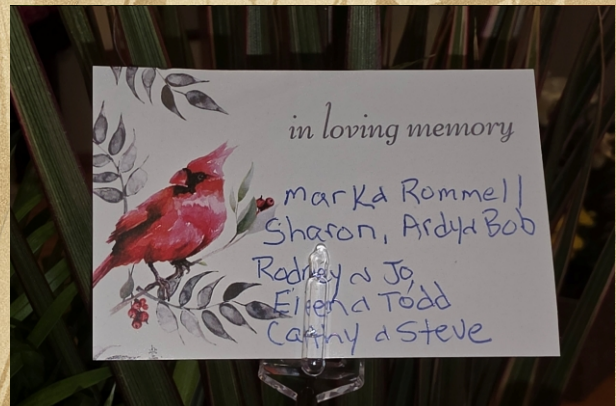 in loving memory
Mark & Rommell
Sharon, Ardy & Bob
Rodney & Jo
& Todd
Cathy & Steve